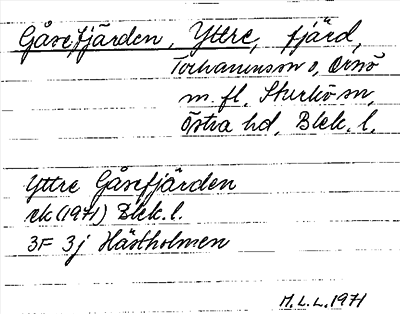 Gåsefjärden, Yttre, fjärd,
Torhamns sn o, Arnö
m. fl. Sturkö sn,
Östra hd, Blek. l.
Yttre Gåsefjärden
ek (1971) Blek. l.
3F 3j Hästholmen
M.L.L. 1971